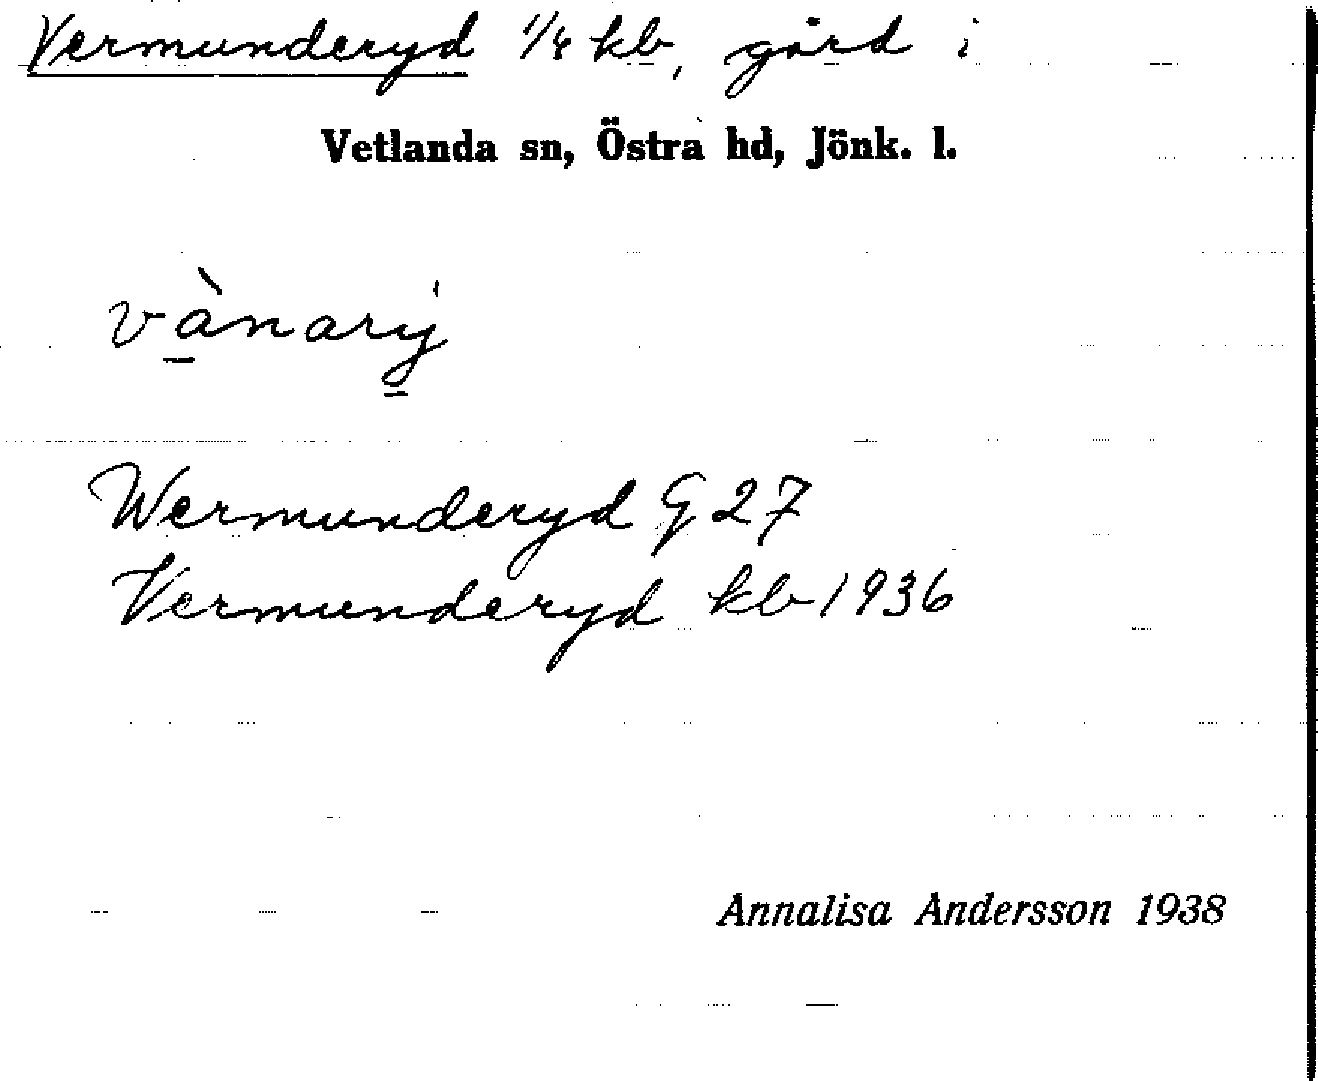 Vermunderyd 1/4 kb, gård i
Vetlanda sn, Östra hd, Jönk. l.
vànarý
Wermunderyd G 27
Vermunderyd kb 1936
Annalisa Andersson 1938